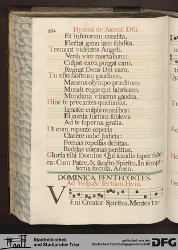 Hymni de Ascens. Dñi
Et infernum condita,
Flectat genu jam subdita.
Tremunt videntes Angeli,
Versa vice mortalium:
Culpat caro, purgat caro,
Regnat Deus Dei caro.
Tu esto nostrum gaudium,
Manens olympo præditum
Mundi regis qui fabricam,
Mundana vincens gaudia.
Hinc te precantes quæsumus,
Ignosce culpis omnibus,
Et corda sursum subleva
Ad te superna gratia.
Ut cum repente cœperis
Clarere nube judicis:
Poenas repellas debitas,
Reddas coronas perditas.
Gloria tibi Domine Qui scandis super sidera
Cum Patre, & sancto Spiritu, In sempiterna
sæcula. Amen.
DOMINICA PENTECOSTES.
Ad Vesp. & Tertiam Hymn.
VEni Creator Spiritus, Mentes tuo-
Bistumsbibliothek
und Staatlicher Archiv Trier
DFG